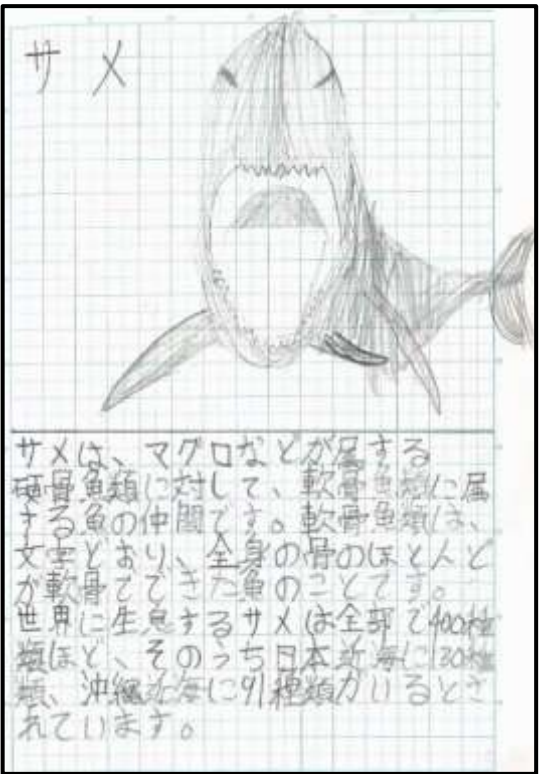 サメ
サメは、マグロなどが属する
硬骨魚類に対して、軟骨魚類に属
する魚の仲間です。軟骨魚類は、
文字どおり、全身の骨のほとんど
が軟骨でできた魚のことです。
世界に生息するサメは全部で400種
類ほど、そのうち日本近海に130種
類、沖縄近海に91種類がいるとさ
れています。